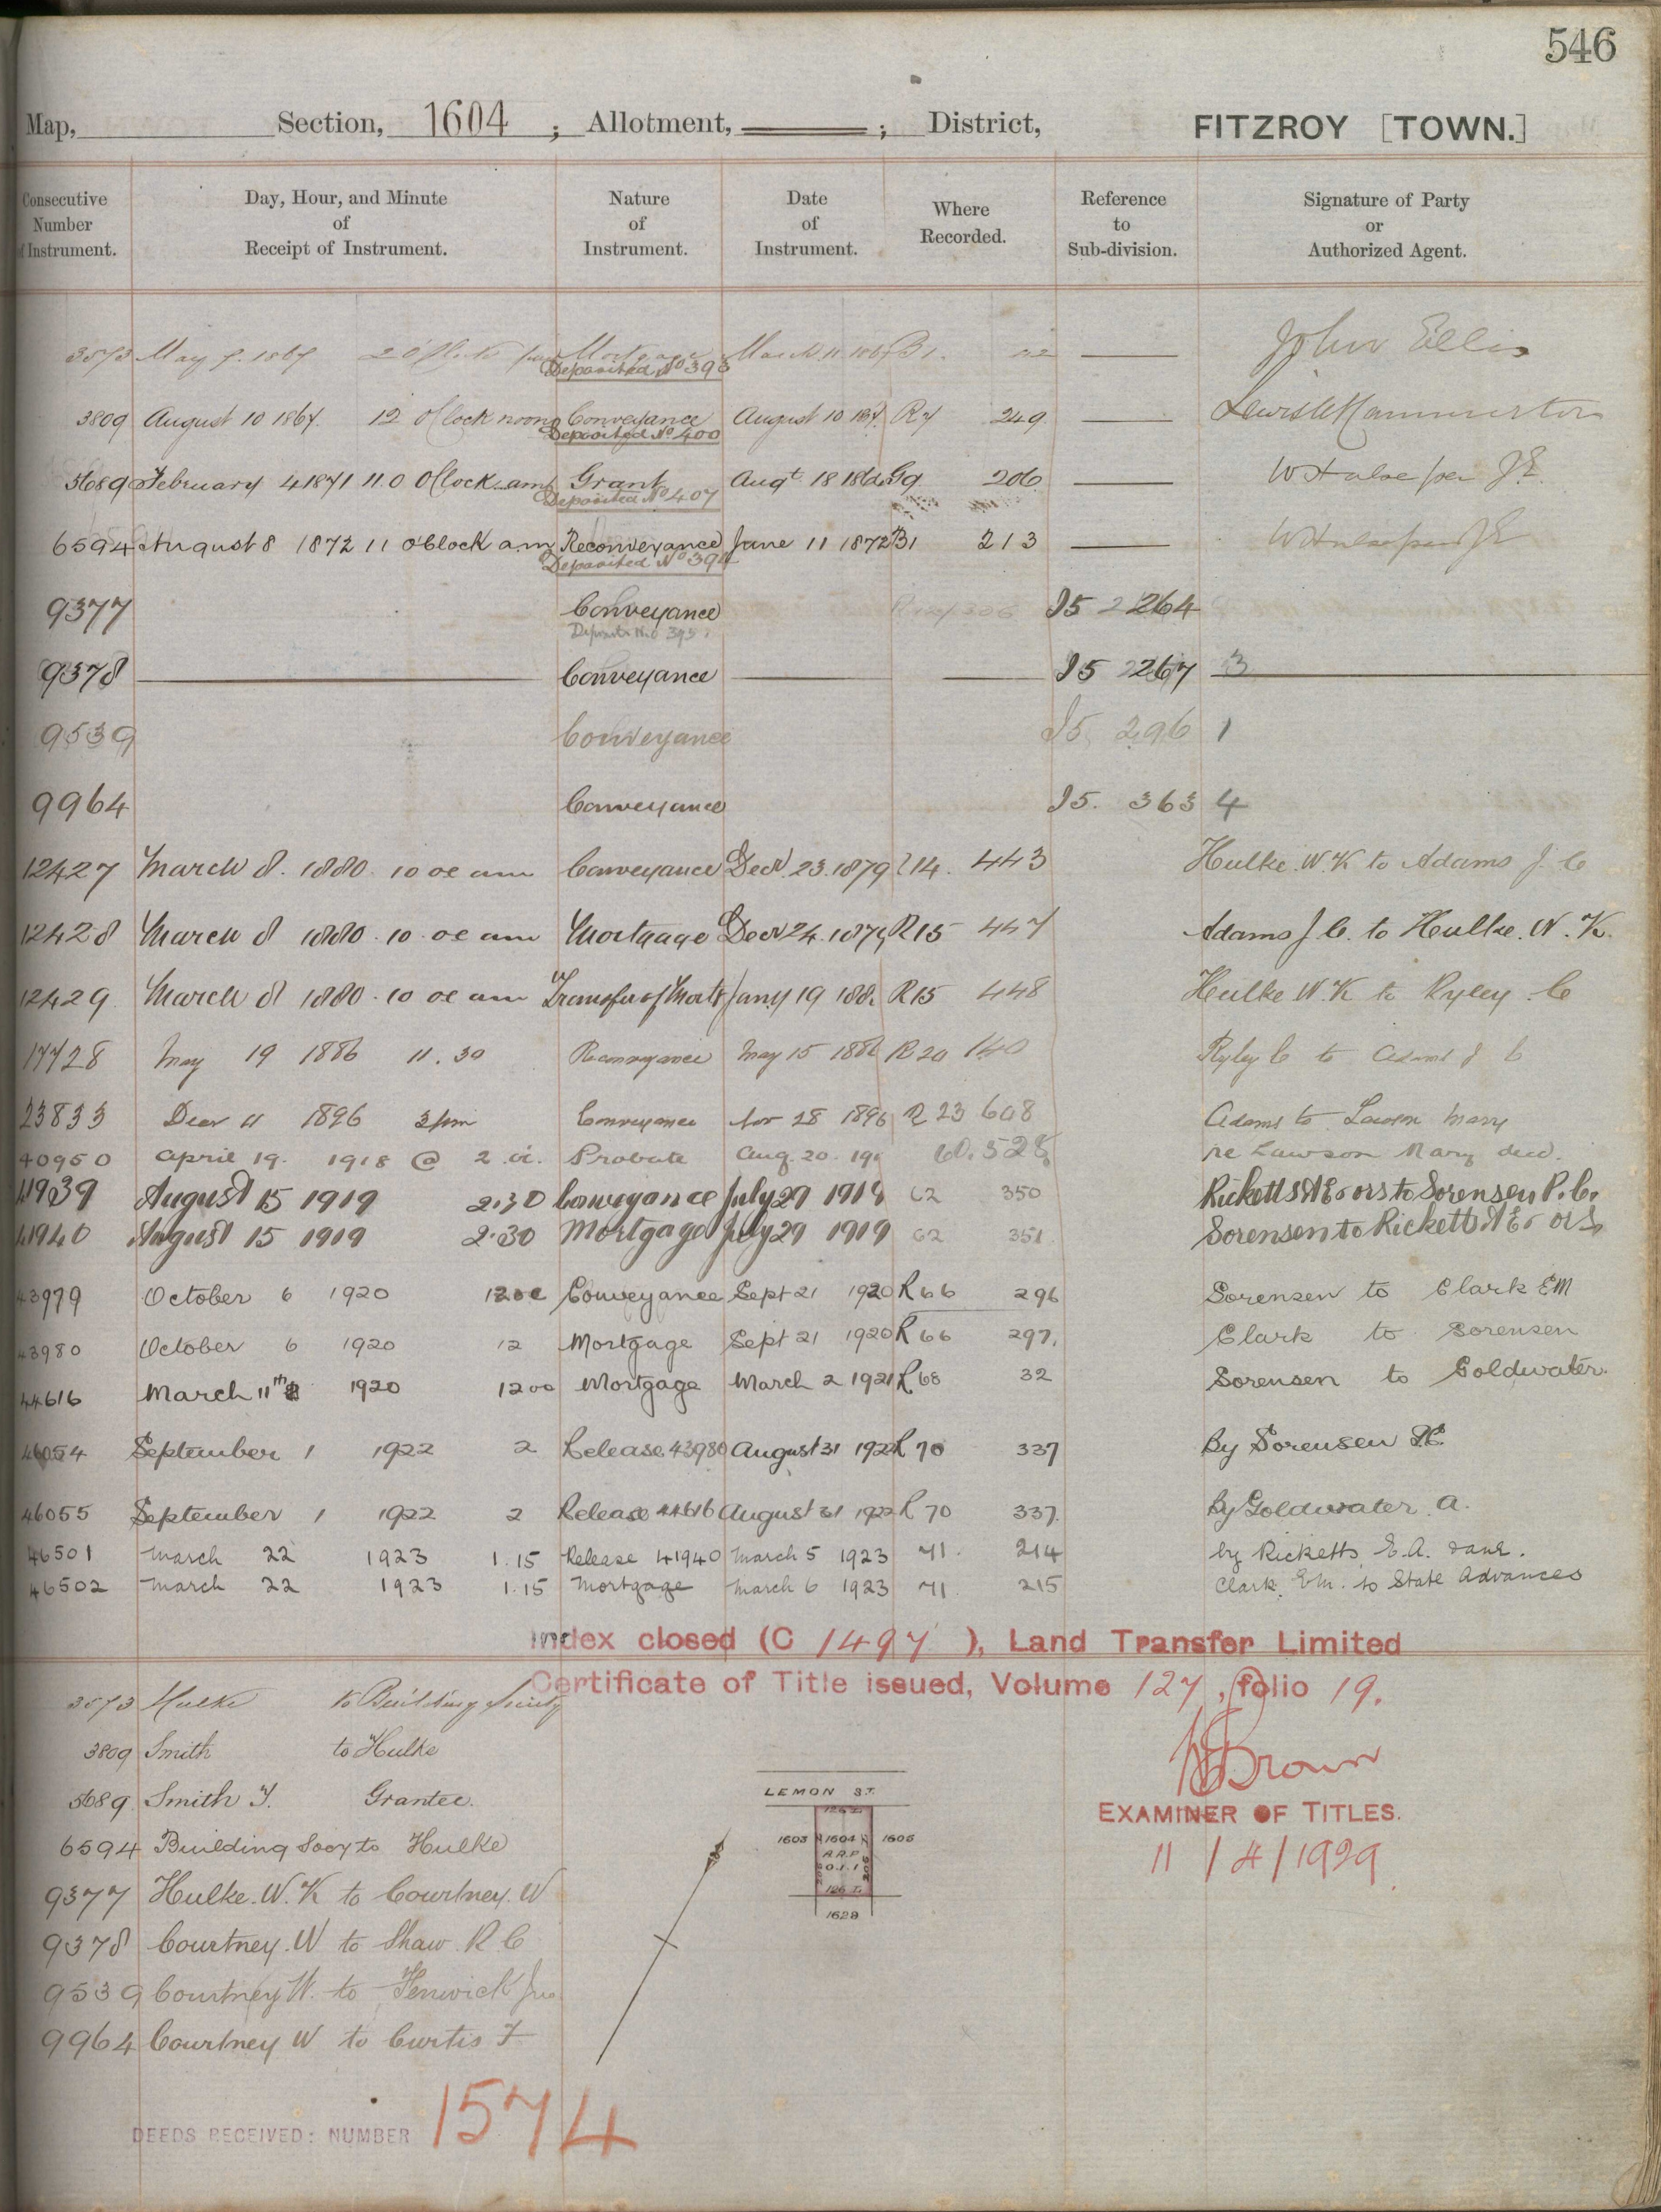 546
Map, Section, 1604 ; Allotment, ; District, FITZROY [TOWN.]
Consecutive Number of Instrument. Day, Hour, and Minute of Receipt of Instrument. Nature of Instrument. Date of Instrument. Where Recorded. Reference to Sub-division. Signature of Party or Authorized Agent.
3573 May 9. 1867 2 O'Clock Mortgage March 11 1867 B1. 22 John Ellis
Deposited No 393
3809 August 10 1867. 12 O'Clock noon Conveyance August 10 1867. R7 249
Deposited No 400
5689 February 4 1871 11.0 O'Clock am Grant Augt 18 186 G9 206 W Hulse per J E.
Deposited No 407
6594 August 8 1872 11 o'Clock a.m Reconveyance June 11 1872 B1 213
Deposited No 394
9377 Conveyance I5 264
Deposits No 395
9378 Conveyance I5 267 3
9539 Conveyance I5 296 1
9964 Conveyance I5. 363 4
12427 March 8. 1880. 10 oc am Conveyance Decr. 23. 1879 R14. 443 Hulke. W. K to Adams J. C
12428 March 8 1880. 10. oc am Mortgage Decr 24. 1879 R15 447 Adams J. C. to Hulke. W. K.
12429 March 8 1880. 10 oc am Transfer of Mortg Jany 19 188 R15 448 Hulke W. K to Ryley. C
17728 May 19 1886 11.30 Reconveyance May 15 1886 R20 140 Ryley C to Adams J C
23833 Decr 11 1896 3 pm Conveyance Nov 28 1896 R 23 608 Adams to Lawson Mary
40950 April 19. 1918 @ 2. oc. Probate Aug. 20. 19 60. 528 re Lawson Mary decd.
41939 August 15 1919 2.30 Conveyance July 29 1919 62 350 Ricketts A E & ors to Sorensen P. C.
41940 August 15 1919 2.30 Mortgage July 29 1919 62 351. Sorensen to Ricketts A E & ors
43979 October 6 1920 12 oc Conveyance Sept 21 1920 R 66 296 Sorensen to Clark EM
43980 October 6 1920 12 Mortgage Sept 21 1920 R 66 297. Clark to Sorensen
44616 March 11th 1920 12 00 Mortgage March 2 1921 R 68 32 Sorensen to Goldwater.
46054 September 1 1922 2 Release 43980 August 31 1922 R 70 337 By Sorensen P.C.
46055 September 1 1922 2 Release 44616 August 31 1922 R 70 337. By Goldwater. A.
46501 March 22 1923 1.15 Release 41940 March 5 1923 71. 214 by Ricketts, E. A. & anr.
46502 March 22 1923 1.15 Mortgage March 6 1923 71. 215 Clark, E.M. to State Advances
Index closed (C 1497 ), Land Transfer Limited
Certificate of Title issued, Volume 127, folio 19.
3573 Hulke to Building Society
3809 Smith to Hulke
5689 Smith T. Grantee.
6594 Building Socy to Hulke
9377 Hulke. W. K to Courtney. W
9378 Courtney. W to Shaw. R C
9539 Courtney W. to Fenwick Jno
9964 Courtney W to Curtis F
Brown
EXAMINER OF TITLES.
11 / 4 / 1929
LEMON ST.
126 L.
1603 1604 1605
A.R.P
0.1.1
126 L.
1629
DEEDS RECEIVED: NUMBER 1574